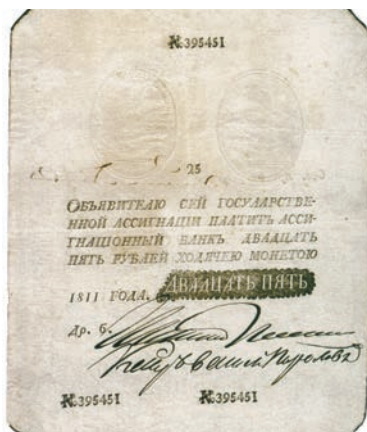 №395451
25
ОБЪЯВИТЕЛЮ СЕЙ ГОСУДАРСТВЕ-
ННОЙ АССИГНАЦІИ ПЛАТИТЪ АССИ-
ГНАЦІОННЫЙ БАНКЪ ДВАДЦАТЬ
ПЯТЬ РУБЛЕЙ ХОДЯЧЕЮ МОНЕТОЮ
1811 ГОДА. ДВАДЦАТЬ ПЯТЬ
№395451 №395451